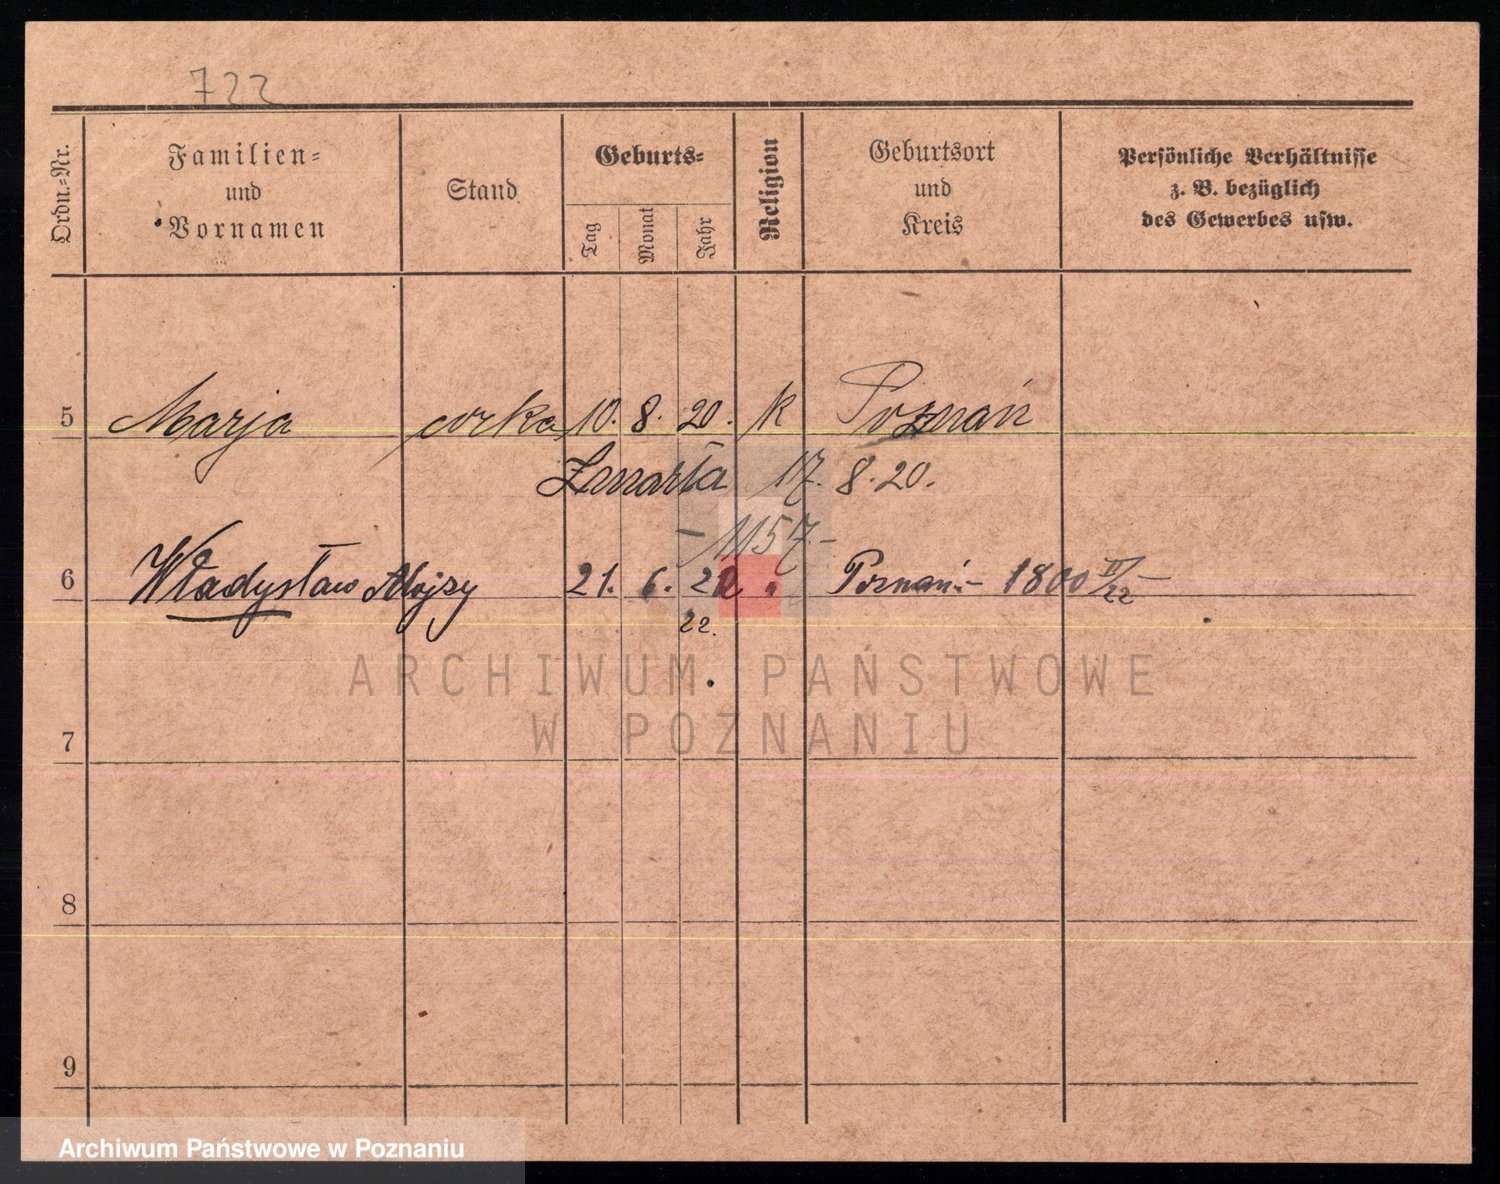 722
Ordn.-Nr.
Familien-
und
Vornamen
Stand
Geburts-
Tag
Monat
Jahr
Religion
Geburtsort
und
Kreis
Persönliche Verhältnisse
z. B. bezüglich
des Gewerbes usw.
5 Marja córka 10. 8. 20. k Poznań
Zmarła 17. 8. 20.
- 1157. -
6 Władysław Alojzy 21. 6. 22 " Poznań. - 1800 IV/22 -
22.
ARCHIWUM PAŃSTWOWE
W POZNANIU
7
8
9
Archiwum Państwowe w Poznaniu